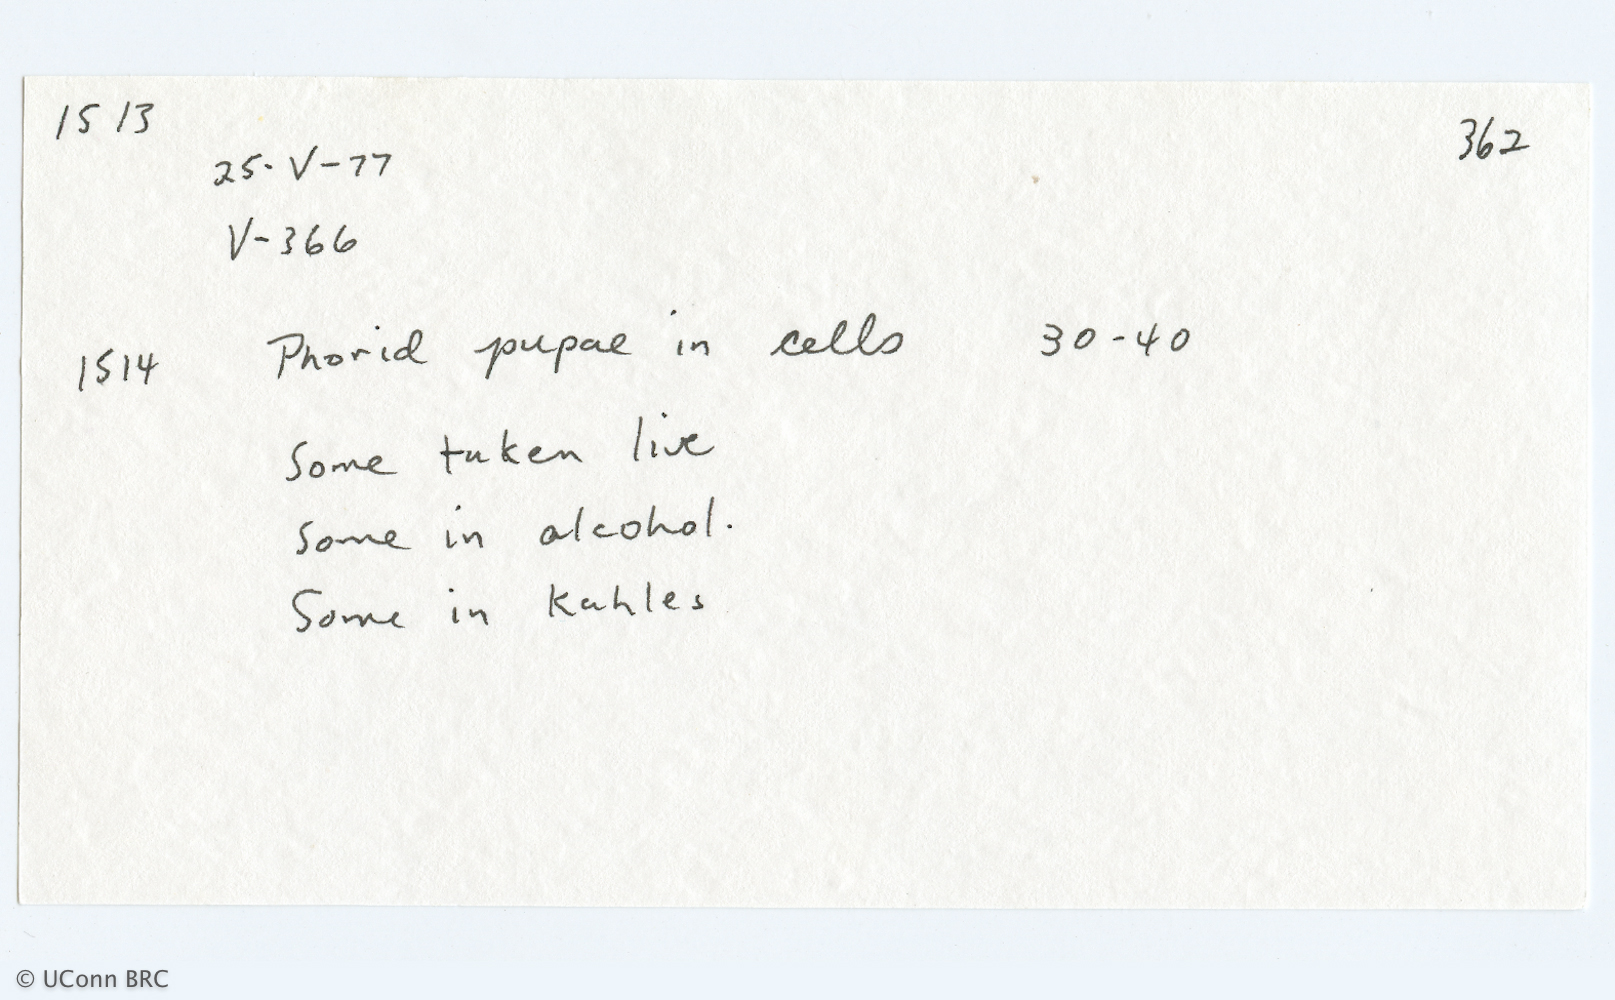 1513
362
25-V-77
V-366
1514 Phorid pupae in cells 30-40
Some taken live
Some in alcohol.
Some in Kahles
© UConn BRC